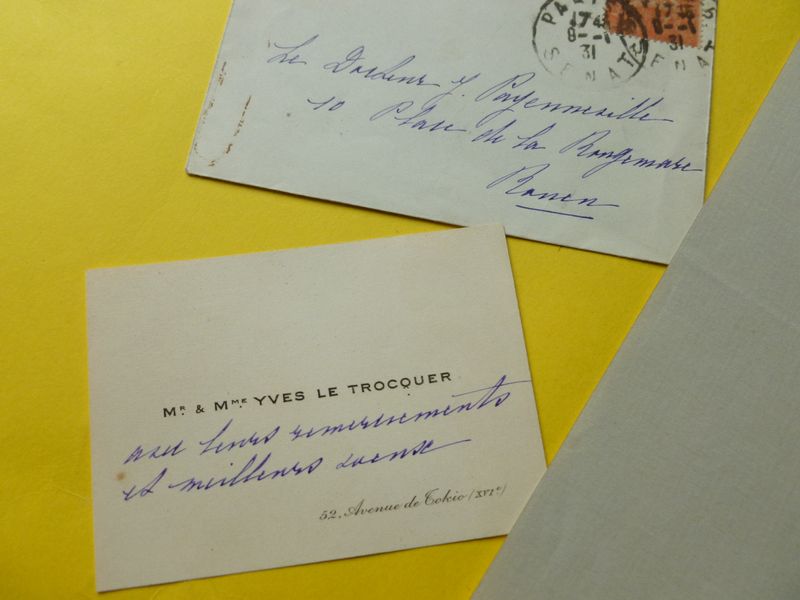 PARIS
17 45
8 - 1
31
SENAT
17 45
8 - 1
31
SENAT
Le Docteur J. Payenneville
10 Place de la Rougemare
Rouen
Mr. & Mme. YVES LE TROCQUER
avec leurs remerciements
et meilleurs voeux
52, Avenue de Tokio (XVIe)